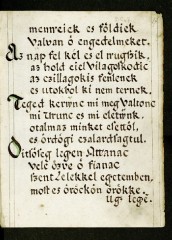 menneiek es földiek
Valvan ő engedelmeket.
Az nap fel kél es el nÿugßik,
az hold ciel vilagoskodic
az czillagokis feńlenek
es utokbol ki nem ternek.
Teged kerÿnc mi meg Valtonc
mi Urunc es mi eletÿnk,
otalmaz minket eßettöl,
es ördögi czalardsagtul.
Ditsőseg legen Attanac
vele őßve ő fianac
ßent Lelekkel egetemben,
most es öröckön örökke.
Ugÿ legē.